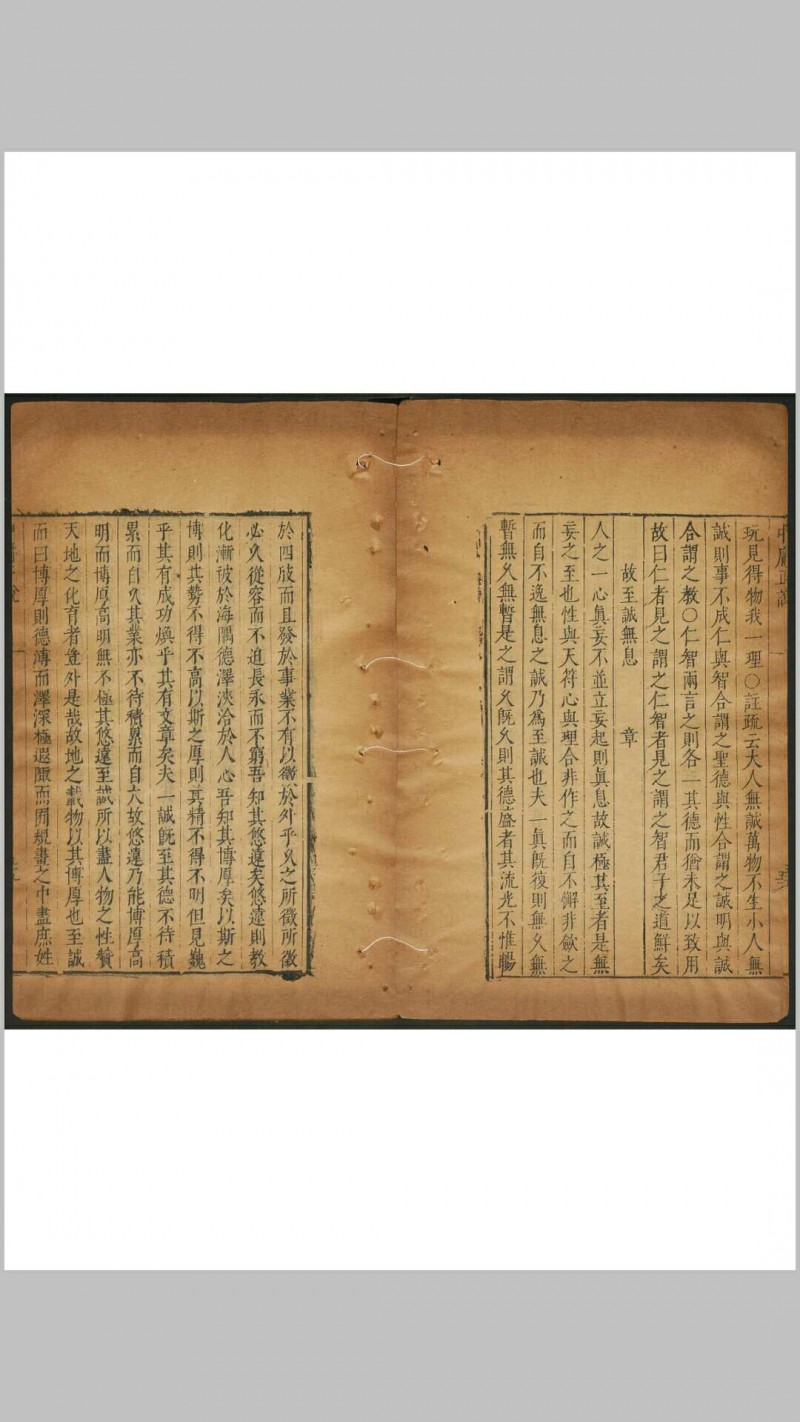 玩見得物我一理○註疏云大人無誠萬物不生小人無
誠則事不成仁與智合謂之聖德與性合謂之誠明與誠
合謂之教○仁智兩言之則各一其德而猶未足以致用
故曰仁者見之謂之仁智者見之謂之智君子之道鮮矣
故至誠無息 章
人之一心眞妄不並立妄起則眞息故誠極其至者是無
妄之至也性與天符心與理合非作之而自不懈非歛之
而自不逸無息之誠乃爲至誠也夫一眞既復則無乆無
暫無乆無暫是之謂乆既乆則其德盛者其流光不惟暢
於四肢而且發於事業不有以徵於外乎乆之所徵所徵
必乆從容而不迫長永而不窮吾知其悠遠矣悠遠則教
化漸被於海隅德澤浹洽於人心吾知其博厚矣以斯之
博則其勢不得不高以斯之厚則其精不得不明但見巍
乎其有成功煥乎其有文章矣夫一誠既至其德不待積
累而自乆其業亦不待積累而自大故悠遠乃能博厚高
明而博厚高明無不極其悠遠至誠所以盡人物之性贊
天地之化育者豈外是哉故地之載物以其博厚也至誠
而曰博厚則德溥而澤深極遐陬而罔規畫之中盡庶姓